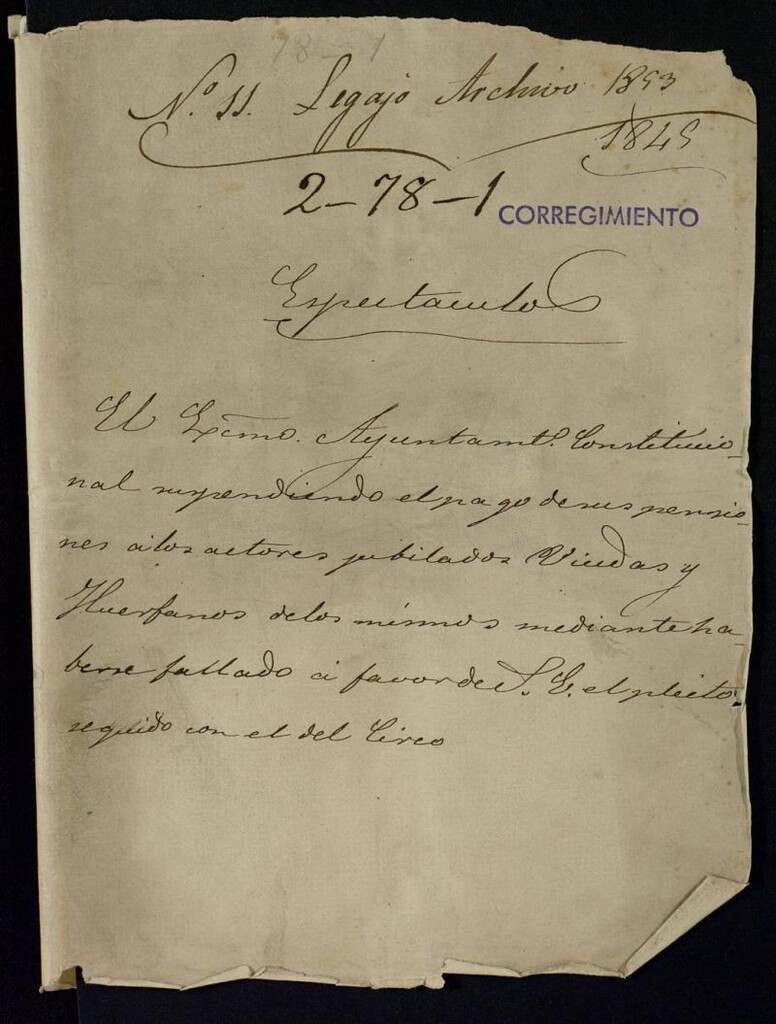 78-1
N.º 11. Legajo Archivo 1853
1845
2-78-1 CORREGIMIENTO
Espectaculos
El Excmo. Ayuntamtº. Constitucio-
nal suspendiendo el pago de sus pensio-
nes á los actores jubilados Viudas y
Huerfanos de los mismos mediante ha-
berse fallado á favor de S. E. el pleito
seguido con el del Circo